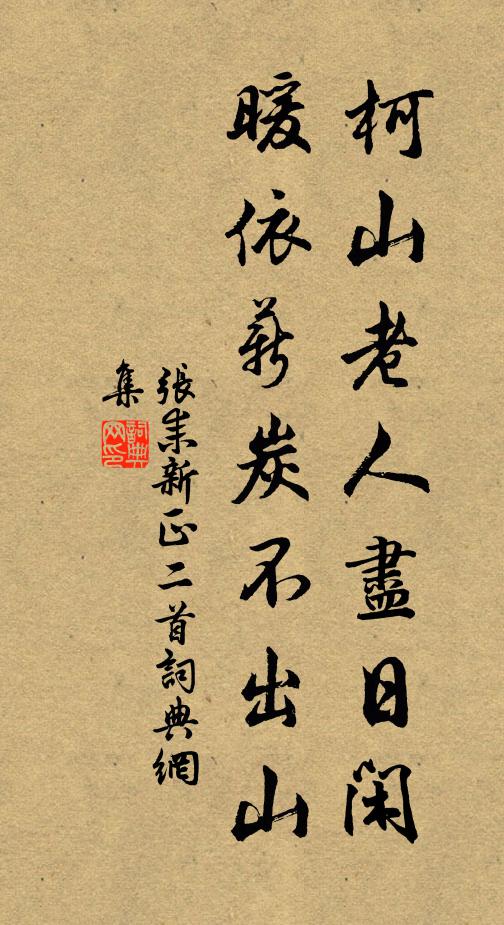 柯山老人盡日閑
暖依薪炭不出山
張耒新正二首詞典網
集
詞典網印